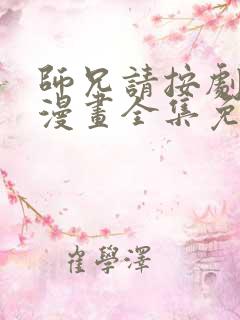 師兄請按劇
漫畫全集免
崔學澤